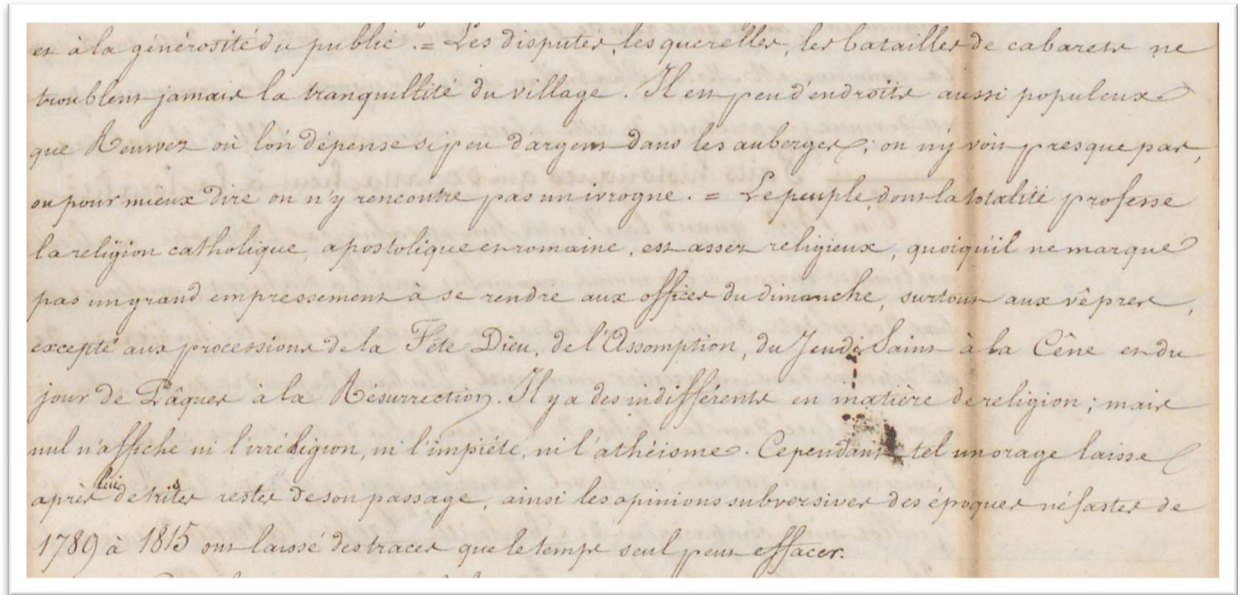 et à la générosité du public. = Les disputes, les querelles, les batailles de cabarets ne
troublent jamais la tranquillité du village. Il est peu d'endroits aussi populeux
que Renwez où l'on dépense si peu d'argent dans les auberges; on n'y voit presque pas,
ou pour mieux dire on n'y rencontre pas un ivrogne. = Le peuple, dont la totalité professe
la religion catholique, apostolique et romaine, est assez religieux, quoiqu'il ne marque
pas un grand empressement à se rendre aux offices du dimanche, surtout aux vêpres,
excepté aux processions de la Fête-Dieu, de l'Assomption, du Jeudi Saint à la Cêne et du
jour de Pâques à la Résurrection. Il y a des indifférents en matière de religion; mais
nul n'affiche ni l'irréligion, ni l'impiété, ni l'athéisme. Cependant tel un orage laisse
après lui de tristes restes de son passage, ainsi les opinions subversives des époques néfastes de
1789 à 1815 ont laissé des traces que le temps seul peut effacer.